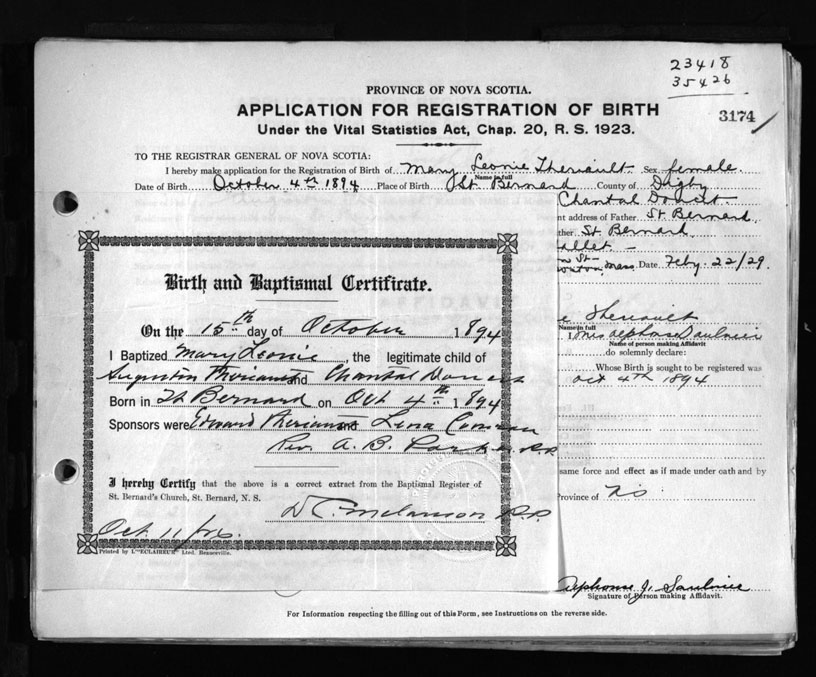 23418
35426
3174
PROVINCE OF NOVA SCOTIA.
APPLICATION FOR REGISTRATION OF BIRTH
Under the Vital Statistics Act, Chap. 20, R. S. 1923.
TO THE REGISTRAR GENERAL OF NOVA SCOTIA:
I hereby make application for the Registration of Birth of Mary Leonie Theriault Sex female
Name in full
Date of Birth October 4th 1894 Place of Birth St. Bernard County of Digby
Chantal Doucet
nt address of Father St. Bernard
ther St Bernard
allet.
on St-
Mass. Date Feby. 22/29.
Theriault
Name in full
I Mrs Alphose Saulnier
Name of person making Affidavit
do solemnly declare:
Whose Birth is sought to be registered was
oct 4th 1894
same force and effect as if made under oath and by
Province of NS
Alphonse J. Saulnier
Signature of Person making Affidavit.
Birth and Baptismal Certificate.
On the 15th day of October 1894
I Baptized Mary Leonie, the legitimate child of
Theriault and Chantal Doucet
Born in St Bernard on Oct 4th 1894
Sponsors were Edward Theriault and Lina Comeau
Rev. A. B. Parker P.P.
I hereby Certify that the above is a correct extract from the Baptismal Register of
St. Bernard's Church, St. Bernard, N. S.
Melanson P.P.
Oct 11/26.
Printed by L'"ECLAIREUR" Ltd. Beauceville.
For Information respecting the filling out of this Form, see Instructions on the reverse side.